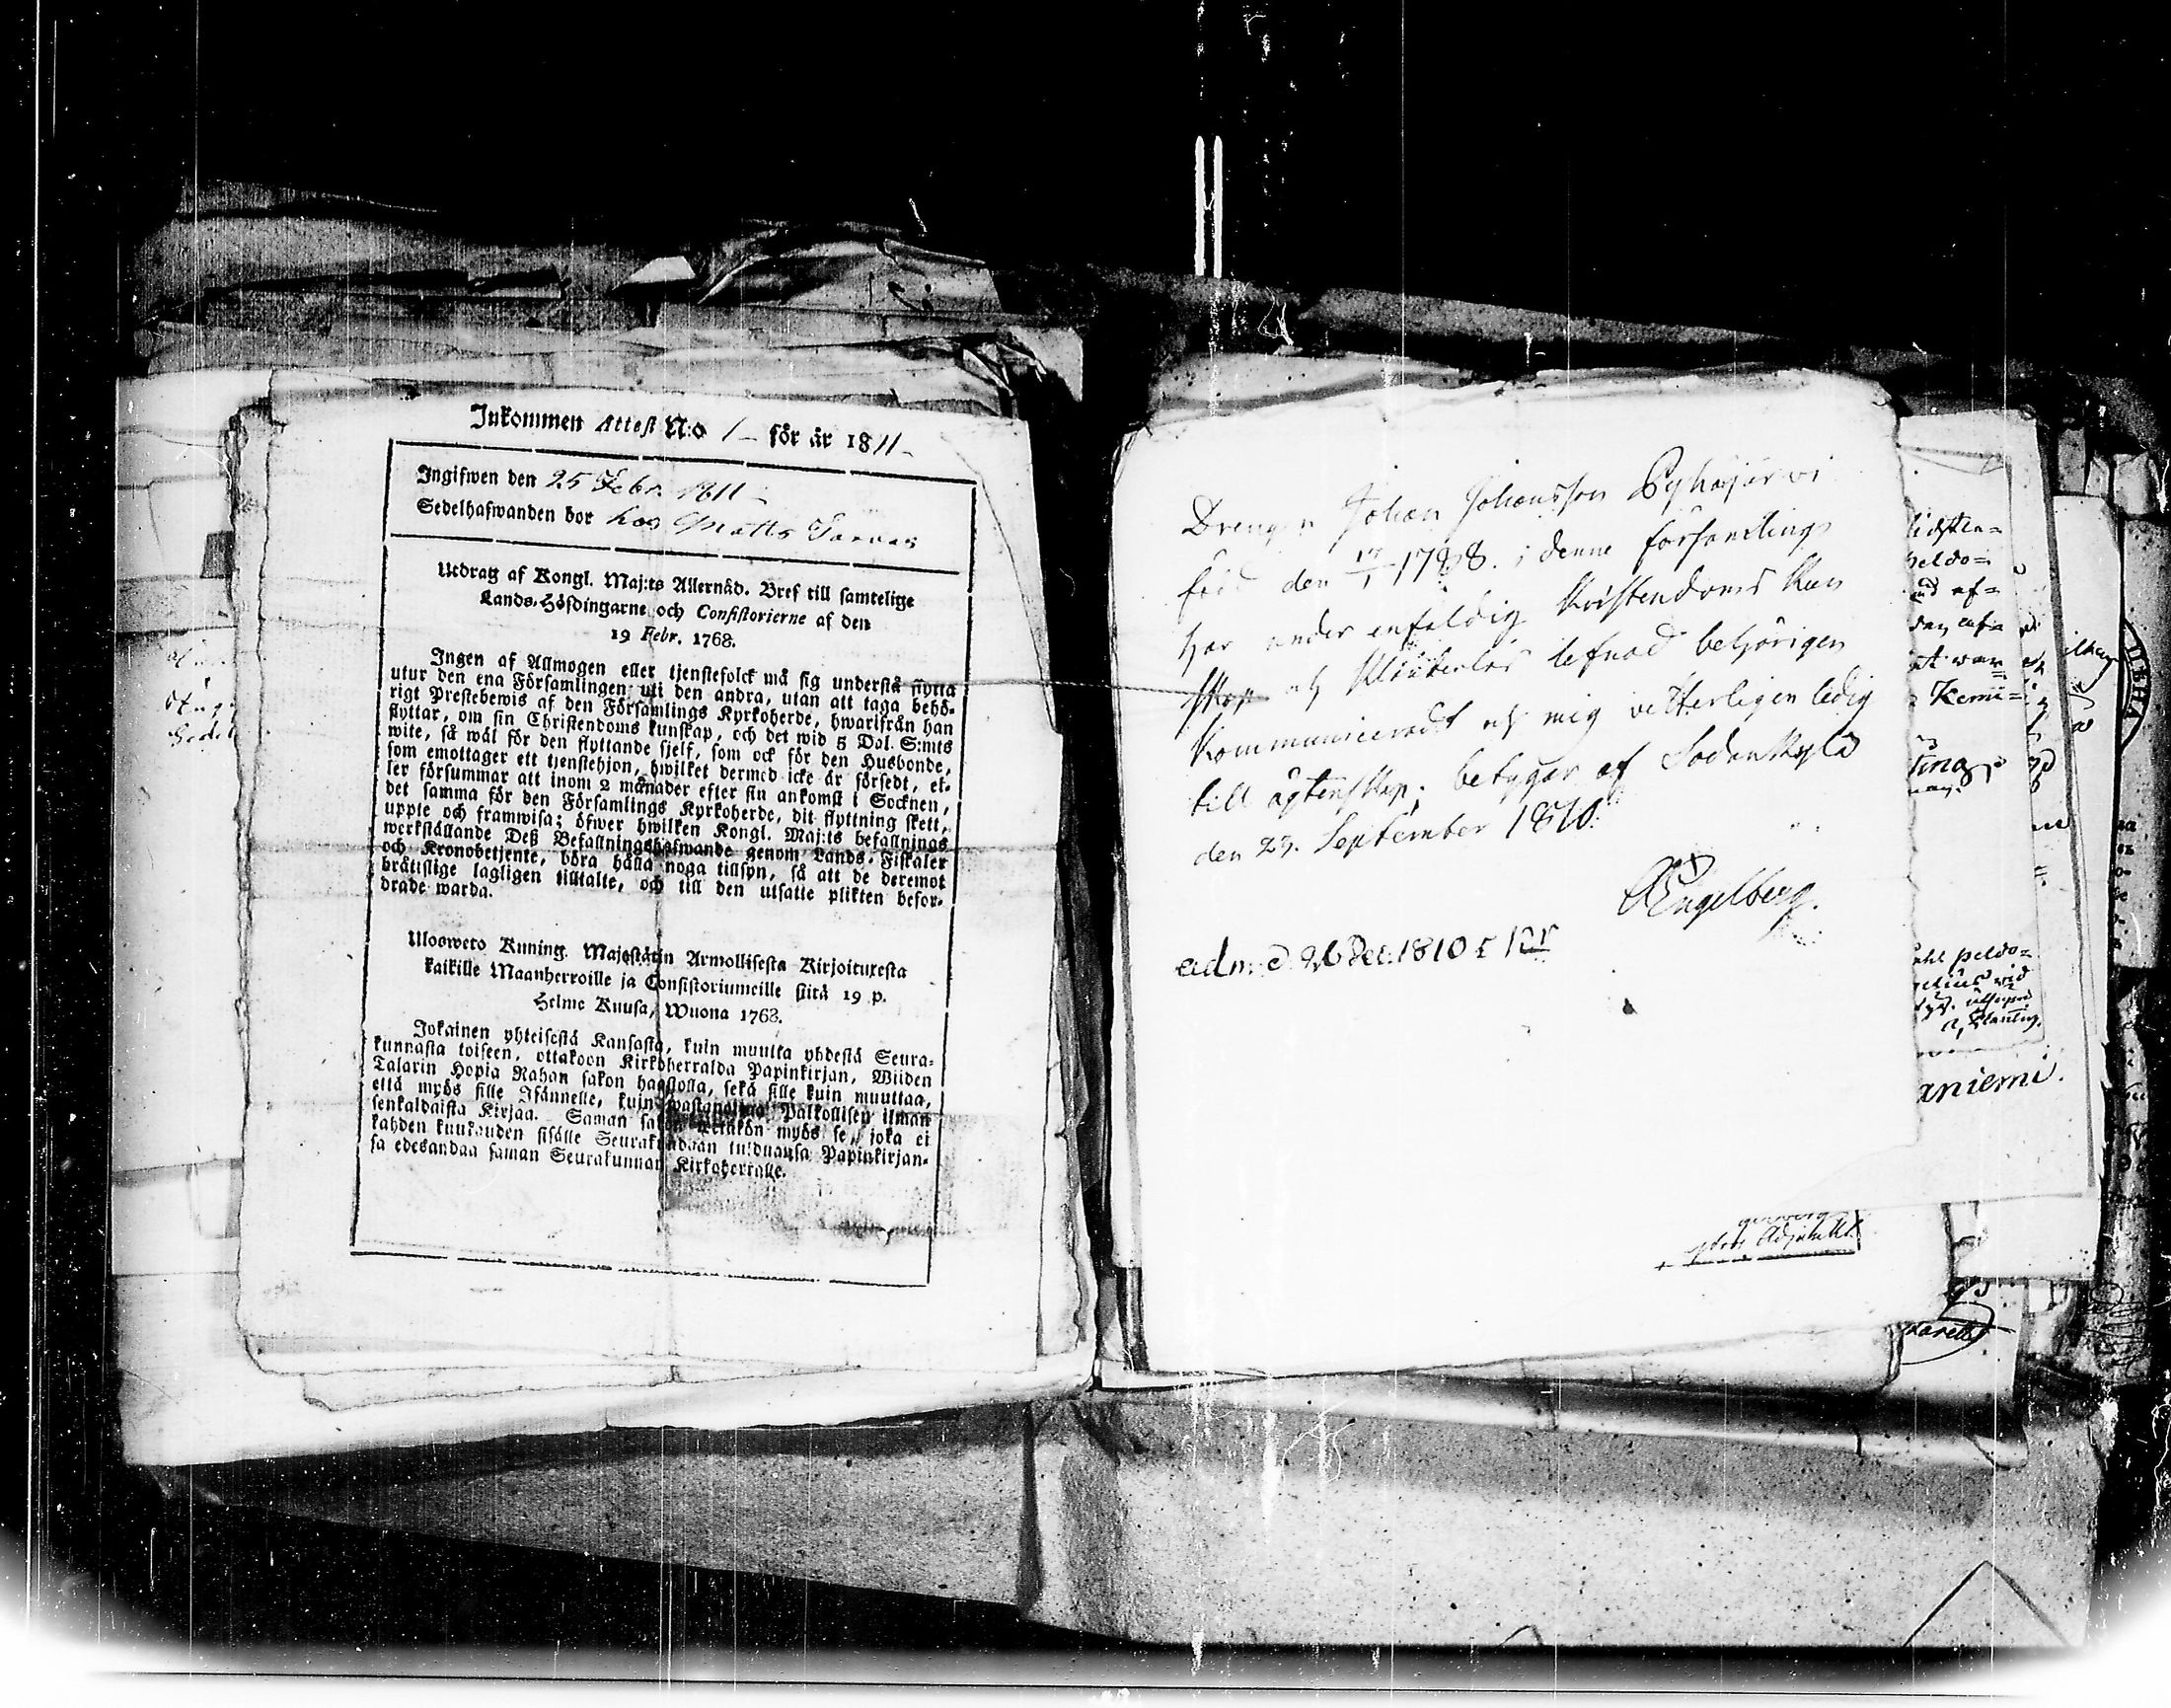 Inkommen Attest N:o 1 för år 1811
Ingifwen den 25 Febr. 1811
Sedelhafwanden bor hos Matts
Utdrag af Kongl. Maj:ts Allernåd. Bref till samtelige
Lands-Höfdingarne och Consistorierne af den
19 Febr. 1768.
Ingen af Allmogen eller tjenstefolck må sig understå flytta
utur den ena Församlingen uti den andra, utan att taga behö-
rigt Prestebewis af den Församlings Kyrkoherde, hwarifrån han
flyttar, om sin Christendoms kunskap, och det wid 5 Dal. S:mts
wite, så wäl för den flyttande sjelf, som ock för den Husbonde,
som emottager ett tjenstehjon, hwilket dermed icke är försedt, el-
ler försummar att inom 2 månader efter sin ankomst i Socknen,
det samma för den Församlings Kyrkoherde, dit flyttning skett,
uppte och framwisa; öfwer hwilken Kongl. Maj:ts befallnings
werkställande Deß Befallningshafwande genom Lands-Fiskaler
och Kronobetjente, böra hålla noga tillsyn, så att de deremot
brättslige lagligen tilltalte, och till den utsatte plikten befor-
drade warda.
Ulosweto Kuning. Majestätin Armollisesta Kirjoituxesta
kaikille Maanherroille ja Consistoriumeille siitä 19 p.
Helme Kuusa, Wuona 1768.
Jokainen yhteisestä Kansasta, kuin muutta yhdestä Seura-
kunnasta toiseen, ottakoon Kirkoherralda Papinkirjan, Wiiden
Talarin Hopia Rahan sakon haastolla, sekä sille kuin muuttaa,
että myös sille Isännelle, kuin wastanottaa Palkollisen ilman
senkaldaista Kirjaa. Saman sakon wetäkön myös se, joka ei
kahden kuukauden sisälle Seurakundaan tulduansa Papinkirjan-
sa edesandaa saman Seurakunnan Kirkoherralle.
Drengen Johan Johansson Pyhäjärvi
född den 17/1 1788. i denne församling
har under enfaldig Kristendoms kun
skap och Klanderlös lefnad behörigen
Kommunicerat och mig vetterligen ledig
till ägtenskap; betygar af Sodankylä
den 23. September 1810.
Engelberg.
adm. d. 26 Dec. 1810
Kemi
aniemi.